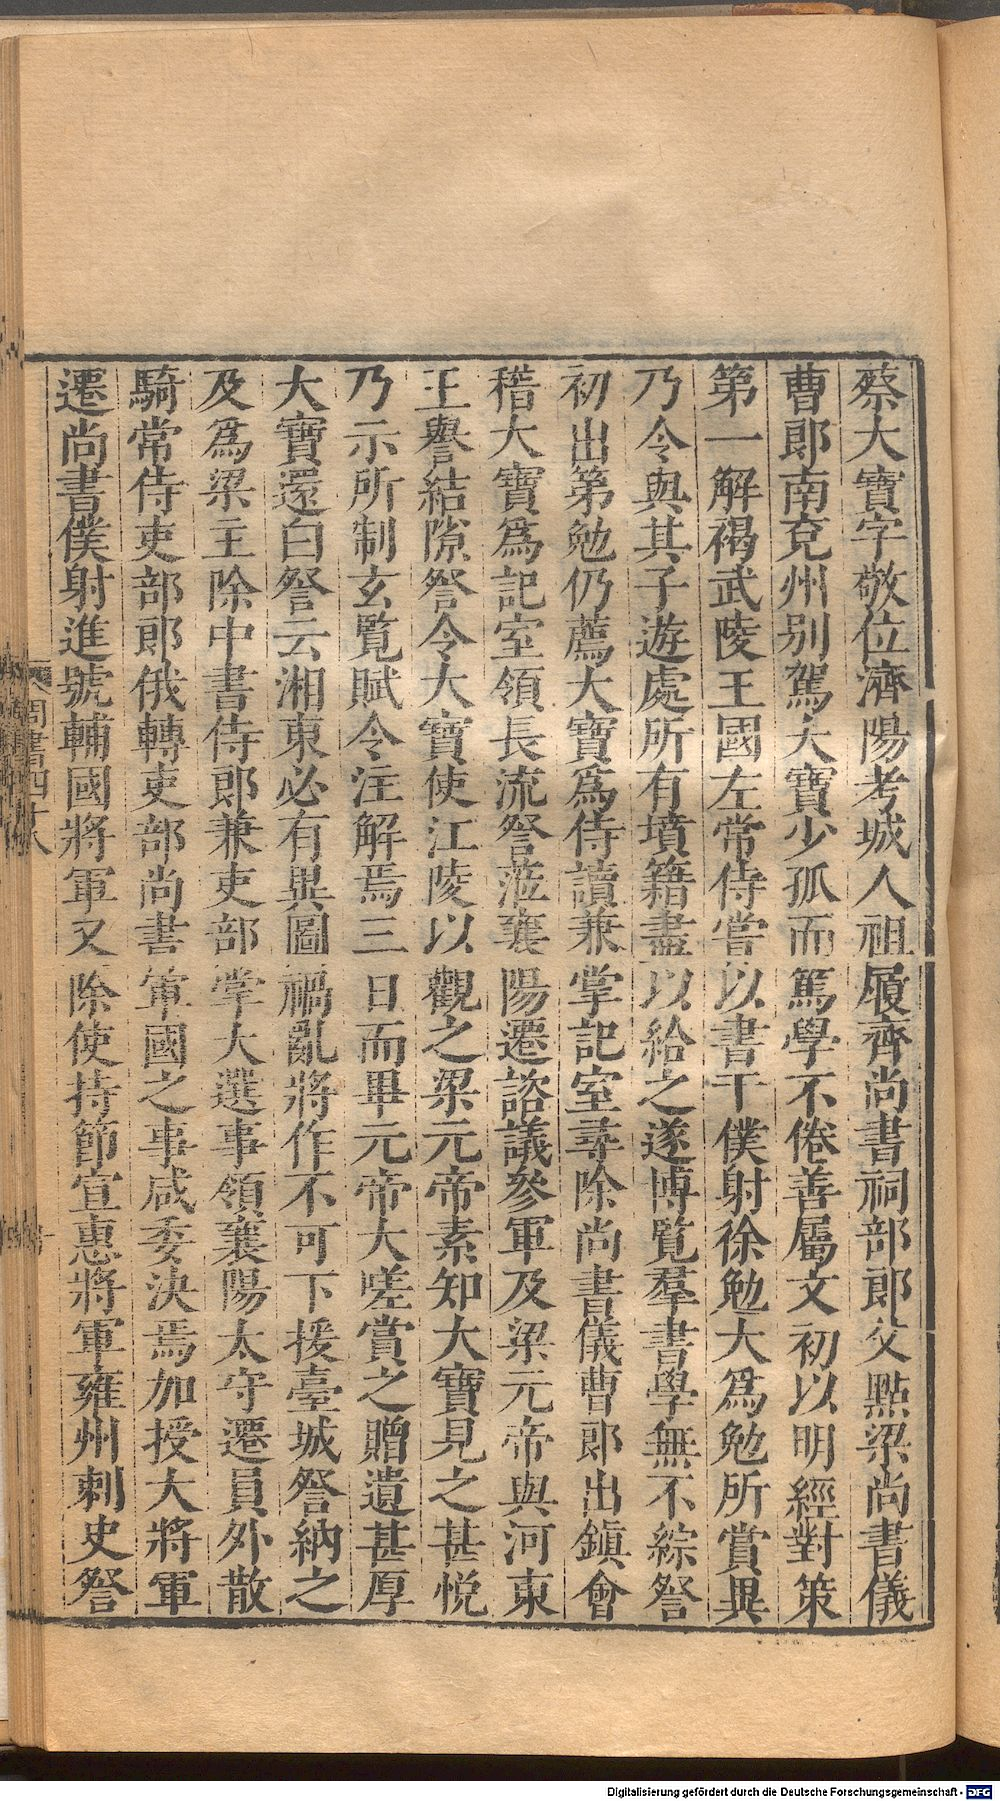 蔡大寶字敬位濟陽考城人祖履齊尚書祠部郎父點梁尚書儀
曹郎南兗州别駕大寶少孤而篤學不倦善屬文初以明經對策
第一解褐武陵王國左常侍嘗以書干僕射徐勉大爲勉所賞異
乃令與其子遊處所有墳籍盡以給之遂博覧羣書學無不綜詧
初出第勉仍薦大寶爲侍讀兼掌記室尋除尚書儀曹郎出鎭會
稽大寶爲記室領長流詧蒞襄陽遷諮議參軍及梁元帝與河東
王譽結隙詧令大寶使江陵以觀之梁元帝素知大寶見之甚悦
乃示所制玄覧賦令注解焉三日而畢元帝大嗟賞之贈遺甚厚
大寶還白詧云湘東必有異圖禍亂將作不可下援臺城詧納之
及爲梁主除中書侍郎兼吏部掌大選事領襄陽太守遷員外散
騎常侍吏部郎俄轉吏部尚書軍國之事咸委決焉加授大將軍
遷尚書僕射進號輔國將軍又除使持節宣惠將軍雍州刺史詧
周書四十八
Digitalisierung gefördert durch die Deutsche Forschungsgemeinschaft - DFG